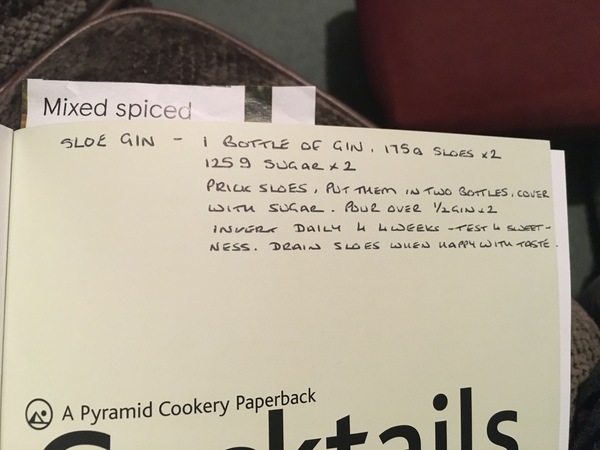 Mixed spiced
SLOE GIN - 1 BOTTLE OF GIN. 175g SLOES x2
125g SUGAR x2
PRICK SLOES, PUT THEM IN TWO BOTTLES. COVER
WITH SUGAR. POUR OVER 1/2 GIN x2
INVERT DAILY 4 4 WEEKS - TEST 4 SWEET-
NESS. DRAIN SLOES WHEN HAPPY WITH TASTE.
A Pyramid Cookery Paperback
Cocktails